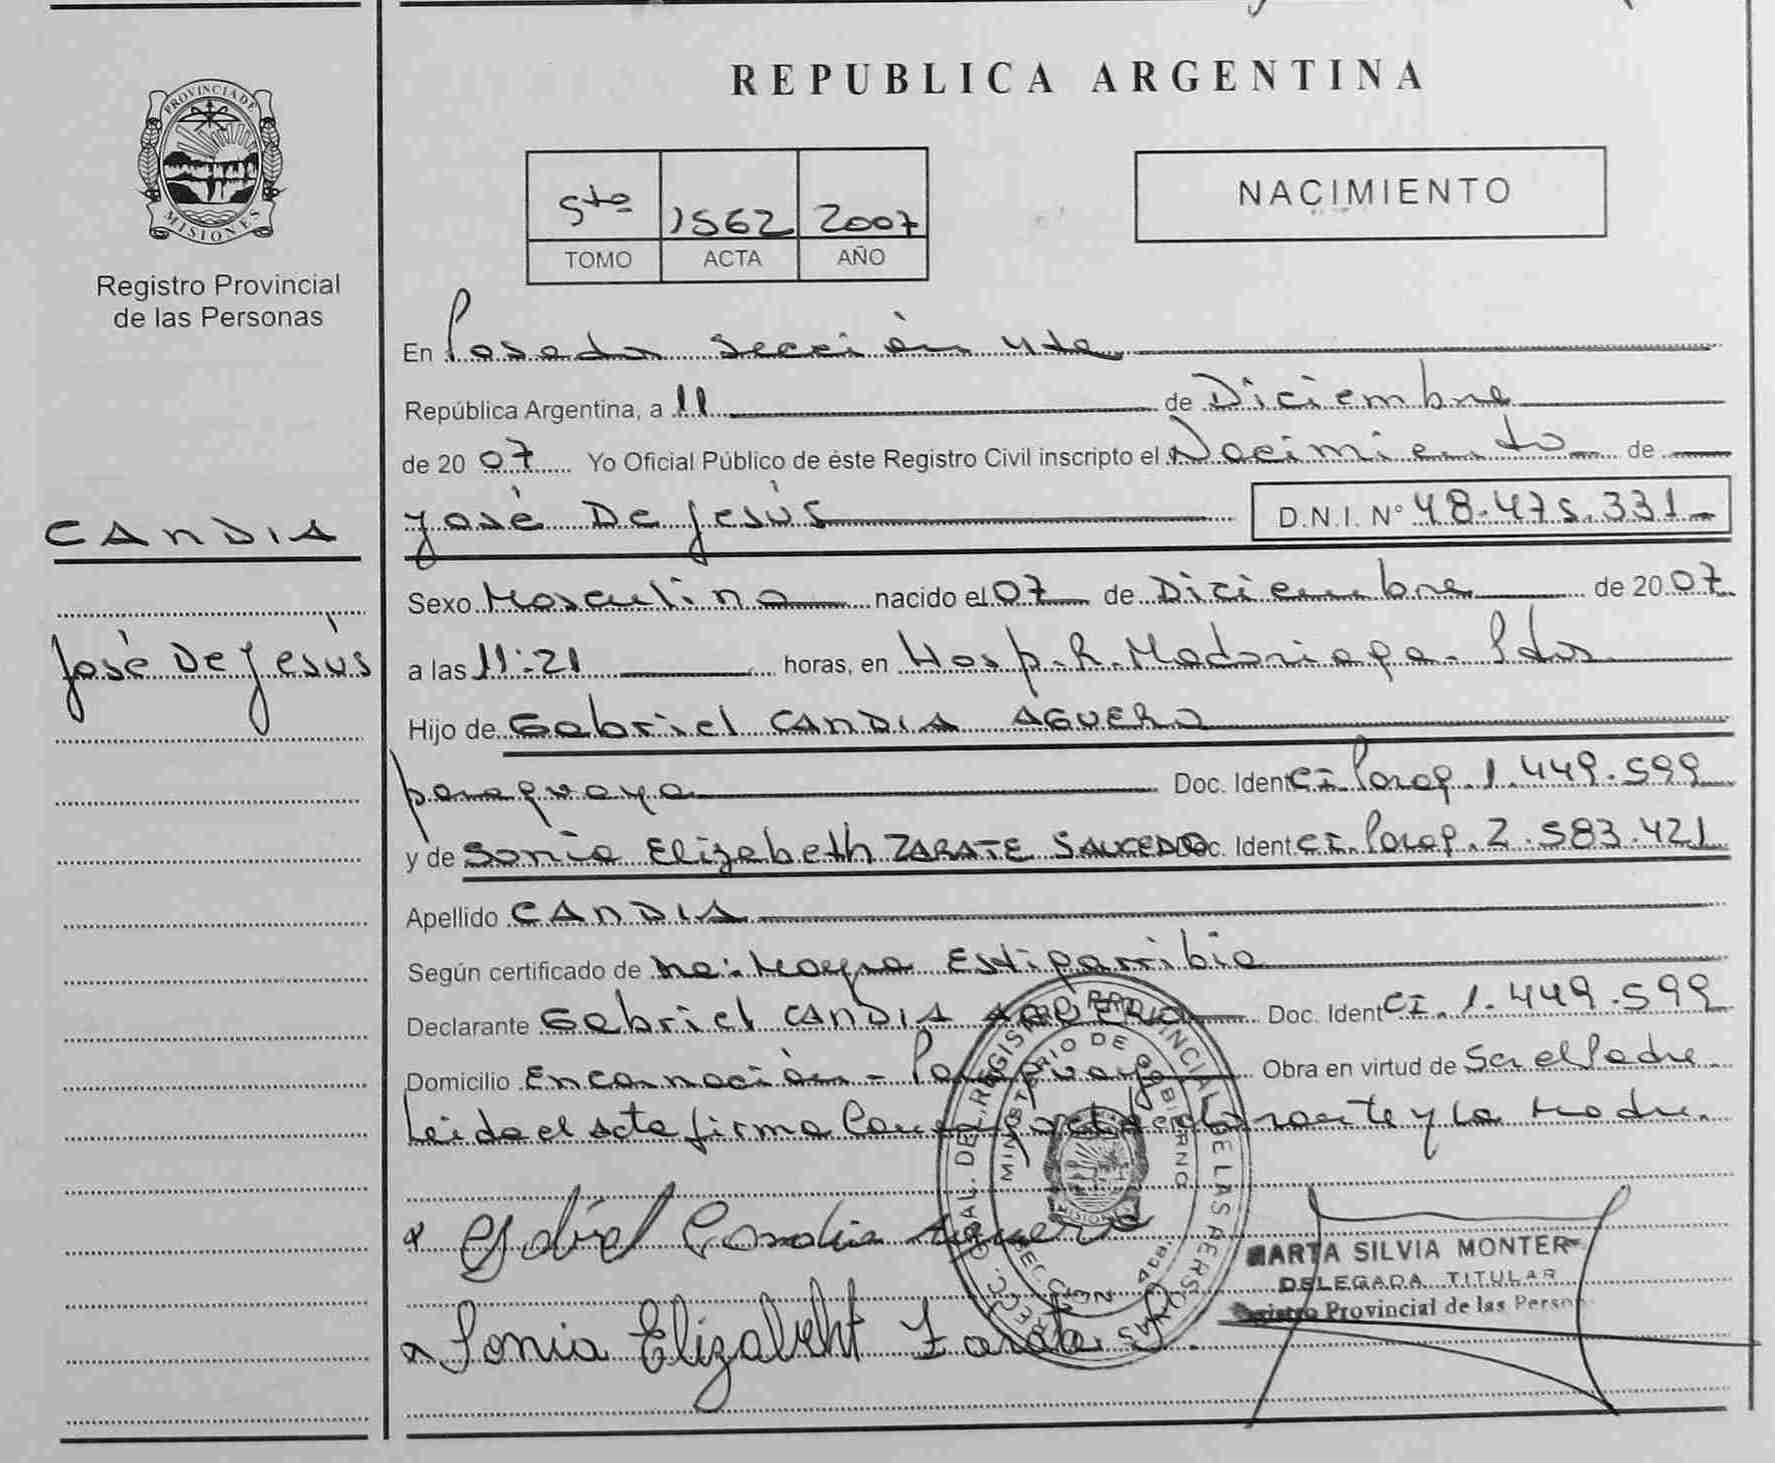 REPUBLICA ARGENTINA
PROVINCIA DE
MISIONES
Registro Provincial
de las Personas
5to 1562 2007
TOMO ACTA AÑO
NACIMIENTO
En Posadas Sección 4ta
República Argentina, a 11 de Diciembre
de 20 07 Yo Oficial Público de éste Registro Civil inscripto el Nacimiento de
CANDIA
José De Jesús D.N.I. N° 48.475.331
Sexo Masculino nacido el 07 de Diciembre de 20 07
José De Jesús
a las 11:21 horas, en Hosp. R. Madariaga. Pdas
Hijo de Gabriel CANDIA AGUERO
paraguaya Doc. Ident CI. Parag. 1.449.599
y de Sonia Elizabeth ZARATE SAUCEDO Doc. Ident CI. Parag. 2.583.421
Apellido CANDIA
Según certificado de Mayra
Declarante Gabriel CANDIA AGUERO Doc. Ident CI. 1.449.599
Domicilio Encarnación - Paraguay Obra en virtud de Ser el Padre
Leida el acta firma declarante y la Madre.
Gabriel Candia Aguero
Sonia Elizabeht Zarate S.
MINISTERIO DE GOBIERNO
MISIONES
MARTA SILVIA MONTER
DELEGADA TITULAR
Registro Provincial de las Person